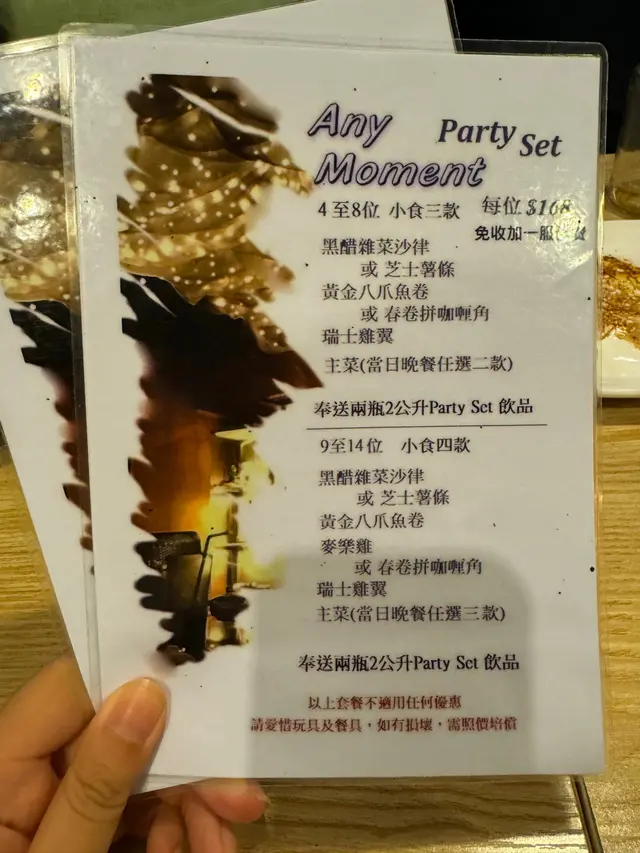 Any Moment
Party Set
4至8位 小食三款 每位 $168
免收加一服
黑醋雜菜沙律
或 芝士薯條
黃金八爪魚卷
或 春卷拼咖喱角
瑞士雞翼
主菜(當日晚餐任選二款)
奉送兩瓶2公升Party Set 飲品
9至14位 小食四款
黑醋雜菜沙律
或 芝士薯條
黃金八爪魚卷
麥樂雞
或 春卷拼咖喱角
瑞士雞翼
主菜(當日晚餐任選三款)
奉送兩瓶2公升Party Set 飲品
以上套餐不適用任何優惠
請愛惜玩具及餐具，如有損壞，需照價培償